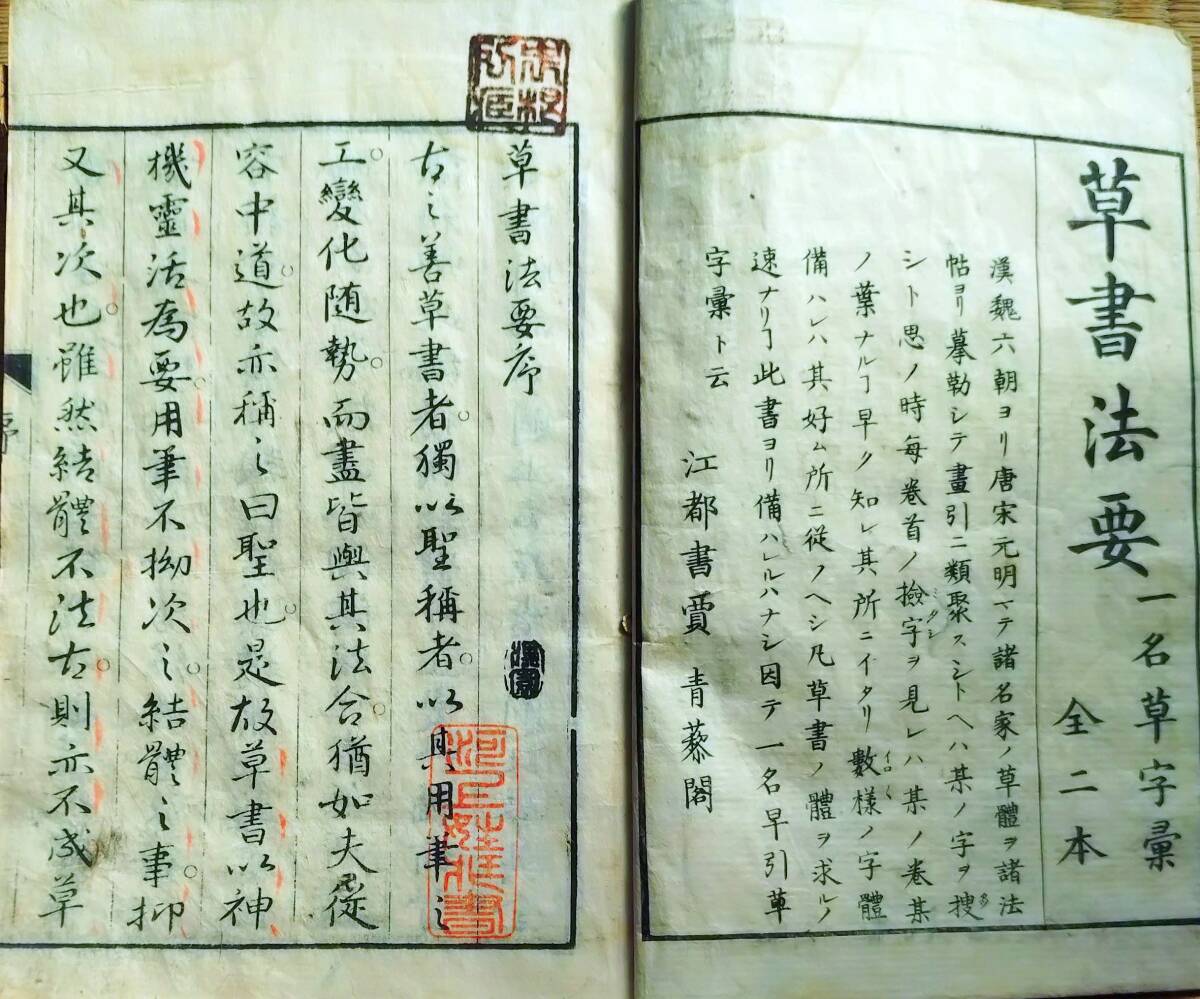 草書法要
一名草字彙
全二本
漢魏六朝ヨリ唐宋元明マテ諸名家ノ草體ヲ諸法
帖ヨリ摹勒シテ畫引ニ類聚ススシトヘハ某ノ字ヲ搜
シト思ノ時每卷首ノ撿字ヲ見レハ某ノ卷某
ノ葉ナルヿ早ク知レ其所ニイタリ數樣ノ字體
備ハレハ其好ム所ニ從フヘシ凡草書ノ體ヲ求ルノ
速ナリヿ此書ヨリ備ハレルハナシ因テ一名早引草
字彙ト云
江都書賈 青藜閣
草書法要序
古之善草書者。獨以聖稱者。以其用筆之
工。變化隨勢。而盡皆與其法合。猶如夫從
容中道。故亦稱之曰聖也。是故草書以神
機靈活為要。用筆不拗次之。結體之事。抑
又其次也。雖然結體不法古。則亦不成草
序